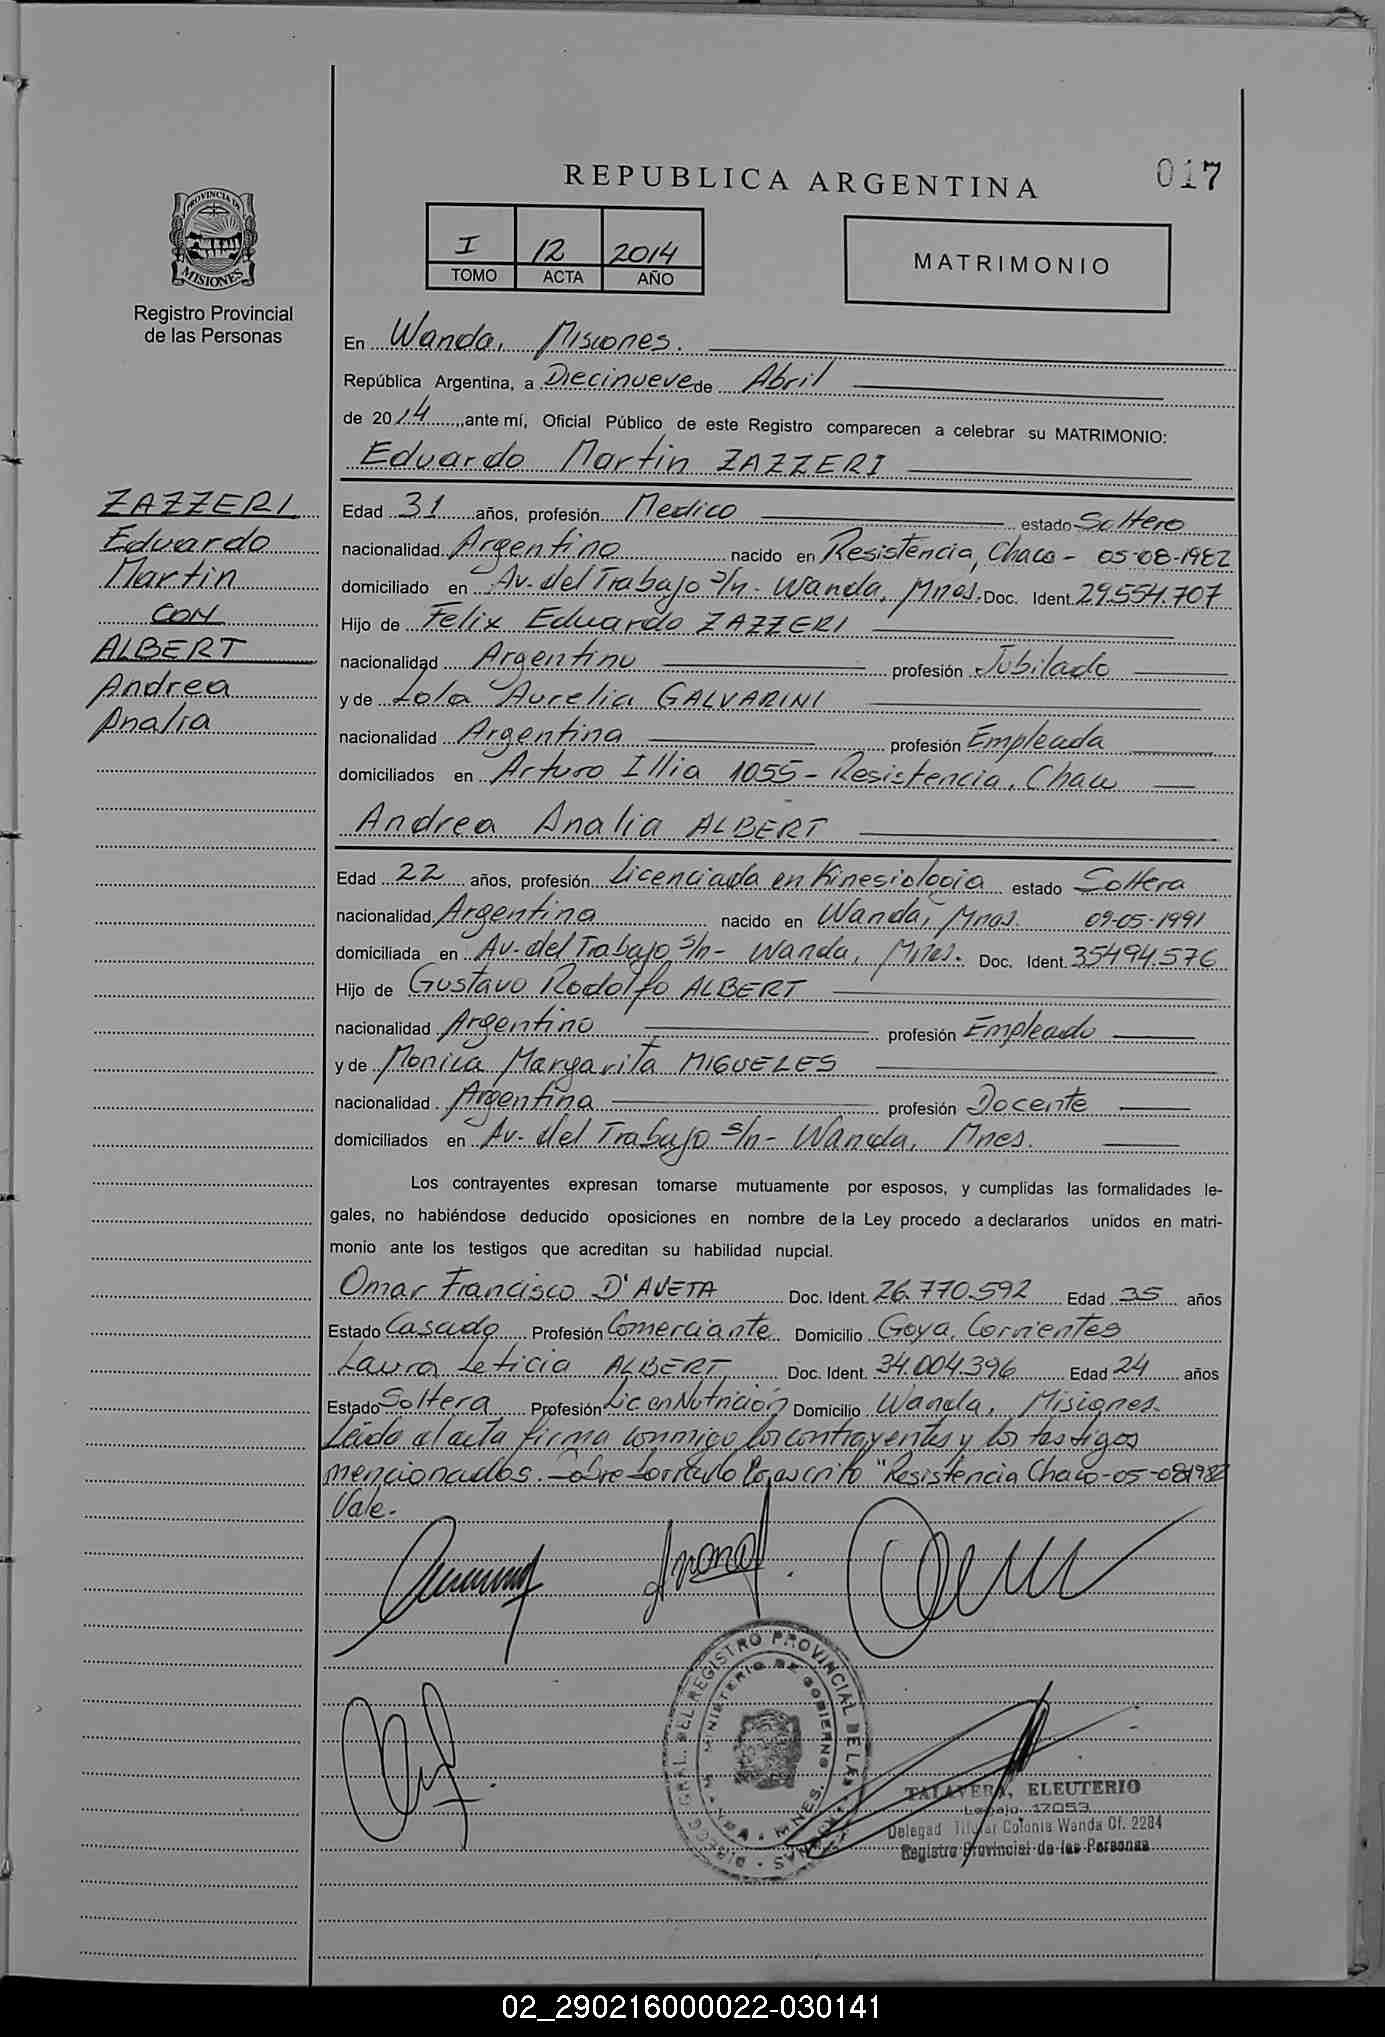 REPUBLICA ARGENTINA
017
PROVINCIA DE
MISIONES
Registro Provincial
de las Personas
I 12 2014
TOMO ACTA AÑO
MATRIMONIO
En Wanda, Misiones.
República Argentina, a Diecinueve de Abril
de 2014, ante mí, Oficial Público de este Registro comparecen a celebrar su MATRIMONIO:
Eduardo Martin ZAZZERI
ZAZZERI
Eduardo
Martin
CON
ALBERT
Andrea
Analia
Edad 31 años, profesión Medico estado Soltero
nacionalidad Argentino nacido en Resistencia, Chaco - 05-08-1982
domiciliado en Av. del Trabajo s/n - Wanda, Mnes. Doc. Ident. 29.554.707
Hijo de Felix Eduardo ZAZZERI
nacionalidad Argentino profesión Jubilado
y de Lola Aurelia GALVARINI
nacionalidad Argentina profesión Empleada
domiciliados en Arturo Illia 1055 - Resistencia, Chaco
Andrea Analia ALBERT
Edad 22 años, profesión Licenciada en Kinesiologia estado Soltera
nacionalidad Argentina nacido en Wanda, Mnes. 09-05-1991
domiciliada en Av. del Trabajo s/n - Wanda, Mnes. Doc. Ident. 35494.576
Hijo de Gustavo Rodolfo ALBERT
nacionalidad Argentino profesión Empleado
y de Monica Margarita MIGUELES
nacionalidad Argentina profesión Docente
domiciliados en Av. del Trabajo s/n - Wanda, Mnes.
Los contrayentes expresan tomarse mutuamente por esposos, y cumplidas las formalidades le-
gales, no habiéndose deducido oposiciones en nombre de la Ley procedo a declararlos unidos en matri-
monio ante los testigos que acreditan su habilidad nupcial.
Omar Francisco D'AVETA Doc. Ident. 26.770.592 Edad 35 años
Estado Casado Profesión Comerciante Domicilio Goya, Corrientes
Laura Leticia ALBERT Doc. Ident. 34.004.396 Edad 24 años
Estado Soltera Profesión Lic en Nutrición Domicilio Wanda, Misiones.
Leida el acta firma conmigo los contrayentes y los testigos
mencionados. Sobre borrado lo escrito "Resistencia Chaco-05-081982
Vale.
DIRECC. GRAL. DEL REGISTRO PROVINCIAL DE LAS PERSONAS
MINISTERIO DE GOBIERNO
MNES.
TALAVERA, ELEUTERIO
Legajo 17053
Delegad Titular Colonia Wanda Of. 2284
Registro Provincial de las Personas
02_290216000022-030141